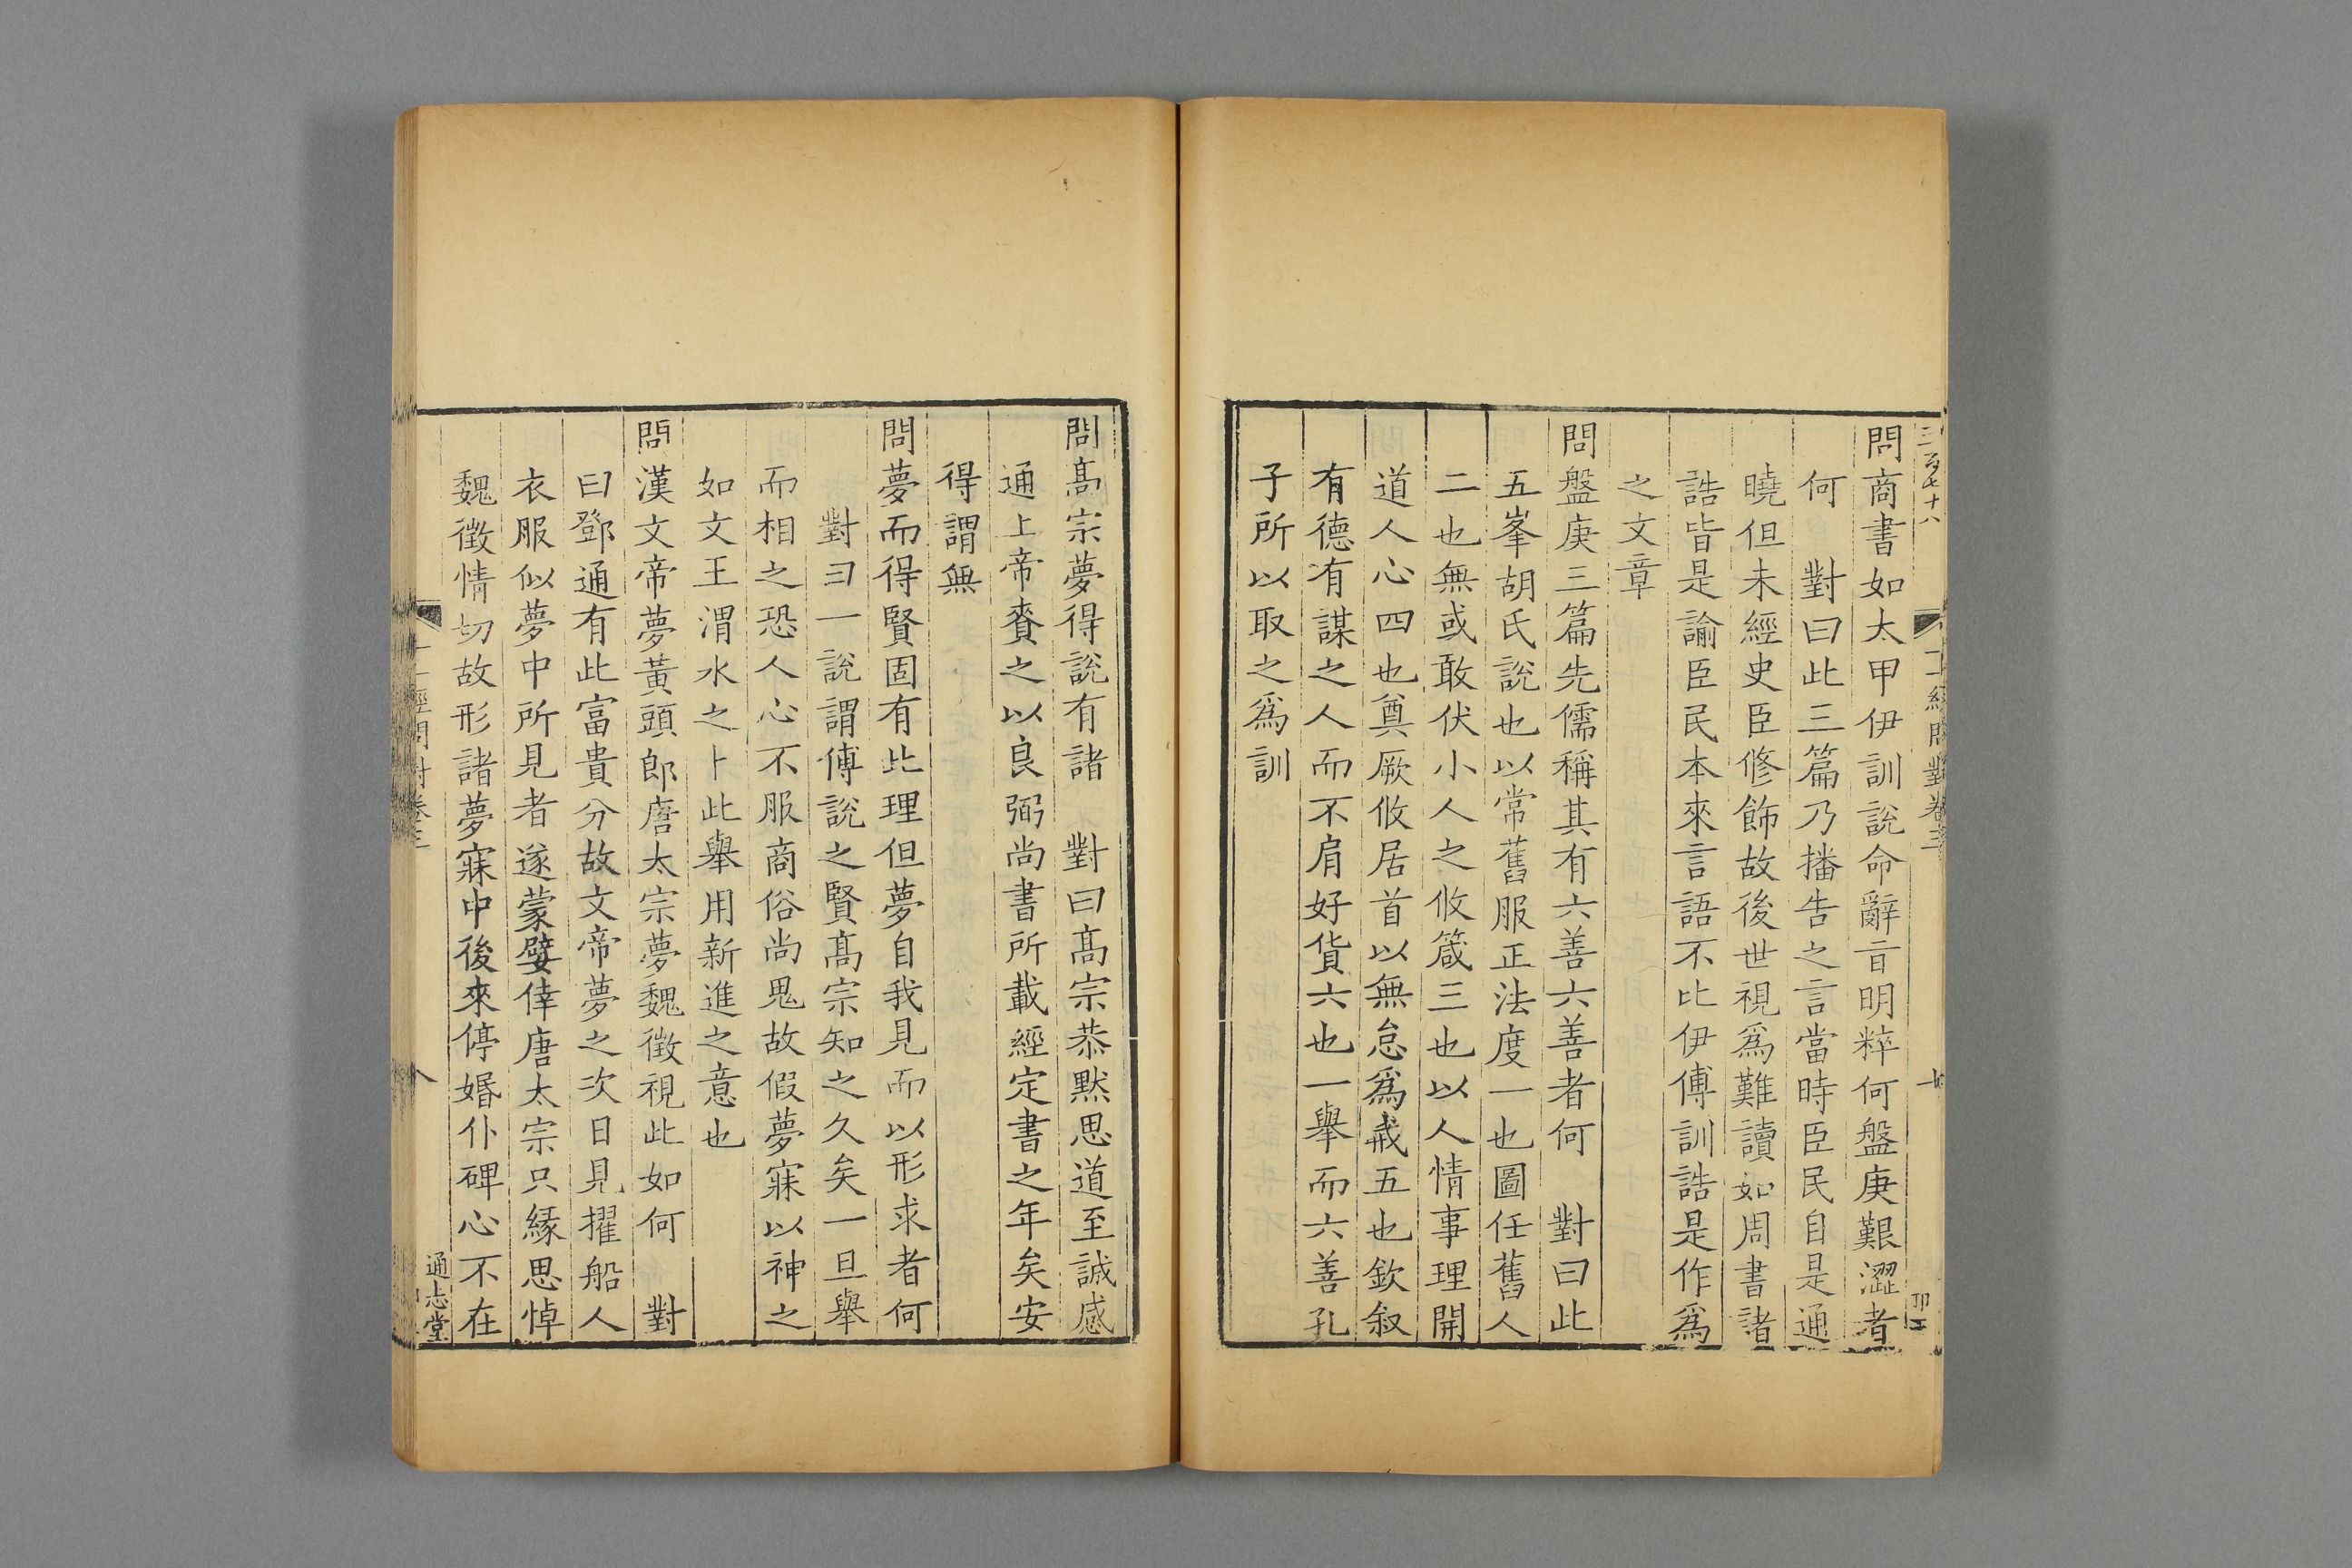 問商書如太甲伊訓說命辭旨明粹何盤庚艱澀者
何　對曰此三篇乃播告之言當時臣民自是通
曉但未經史臣修飾故後世視爲難讀如周書諸
誥皆是諭臣民本來言語不比伊傅訓誥是作爲
之文章
問盤庚三篇先儒稱其有六善六善者何　對曰此
五峯胡氏說也以常舊服正法度一也圖任舊人
二也無或敢伏小人之攸箴三也以人情事理開
道人心四也奠厥攸居首以無怠爲戒五也欽叙
有德有謀之人而不肩好貨六也一舉而六善孔
子所以取之爲訓
問髙宗夢得說有諸　對曰髙宗恭默思道至誠感
通上帝賚之以良弼尚書所載經定書之年矣安
得謂無
問夢而得賢固有此理但夢自我見而以形求者何
對曰一說謂傅說之賢髙宗知之久矣一旦舉
而相之恐人心不服商俗尚鬼故假夢寐以神之
如文王渭水之卜此舉用新進之意也
問漢文帝夢黃頭郎唐太宗夢魏徵視此如何　對
曰鄧通有此富貴分故文帝夢之次日見擢船人
衣服似夢中所見者遂蒙嬖倖唐太宗只緣思悼
魏徵情切故形諸夢寐中後來停婚仆碑心不在
通志堂